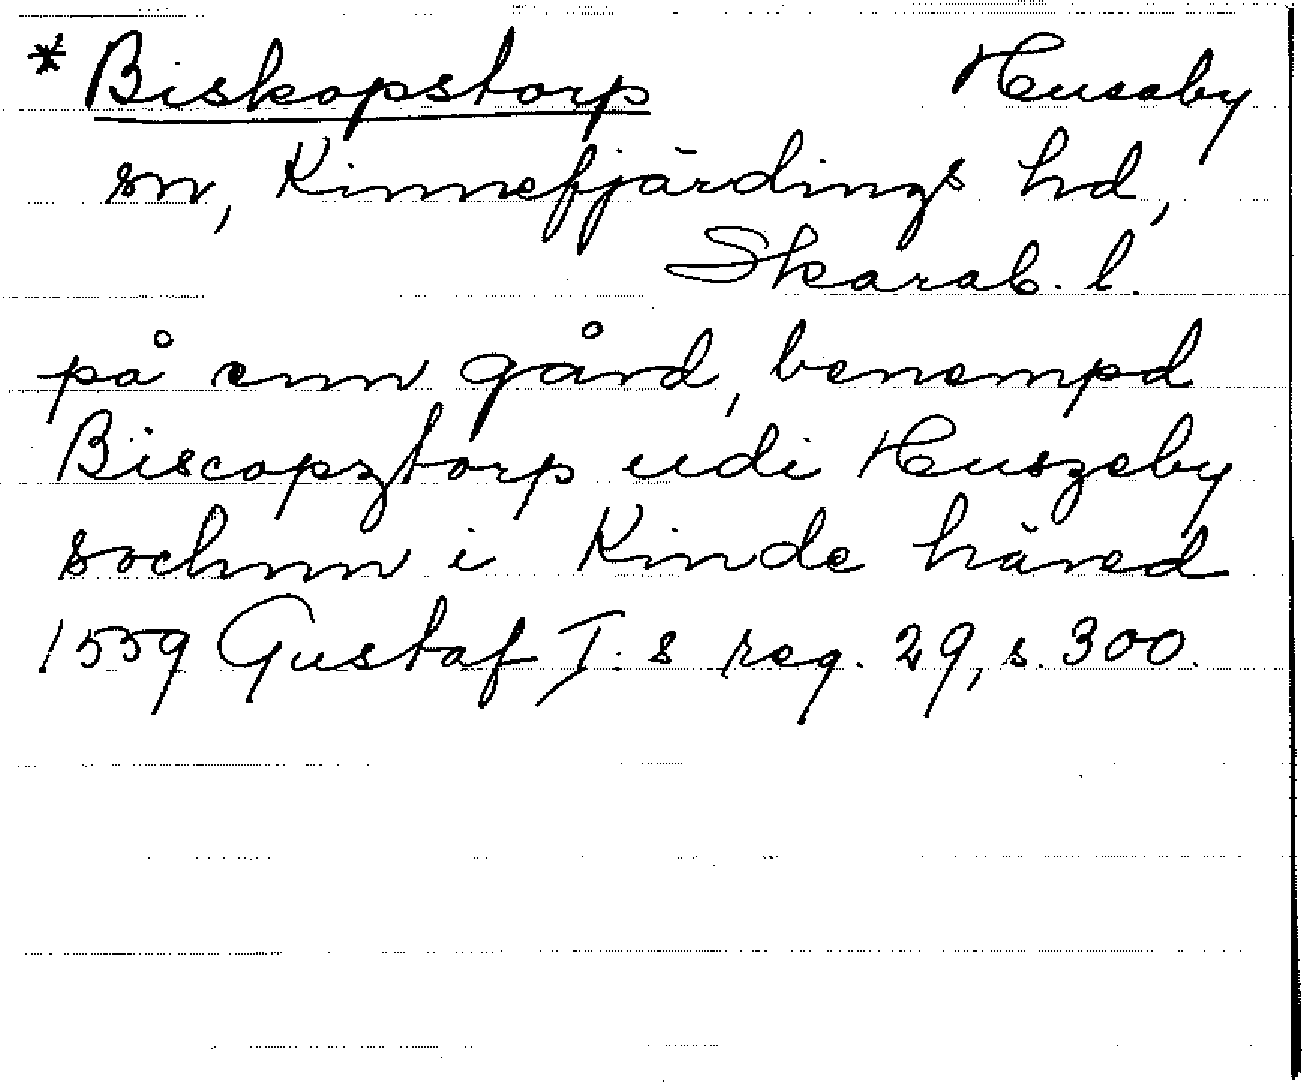 * Biskopstorp Husaby
sn, Kinnefjärdings hd,
Skarab. l.
på enn gård, benempd
Biscopztorp udi Huszeby
sochnn i Kinde häred
1559 Gustaf I:s reg. 29, s. 300.